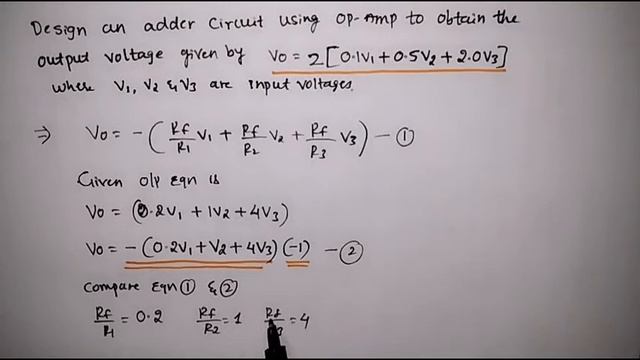 Design an adder circuit using op-Amp to obtain the
output voltage given by Vo = 2[0.1V1 + 0.5V2 + 2.0V3]
where V1, V2 & V3 are input voltages.
⇒ Vo = -(Rf/R1 V1 + Rf/R2 V2 + Rf/R3 V3) — ①
Given o/p Eqn is
Vo = (0.2V1 + 1V2 + 4V3)
Vo = -(0.2V1 + V2 + 4V3)(-1) — ②
Compare Eqn ① & ②
Rf/R1 = 0.2 Rf/R2 = 1 Rf/R3 = 4